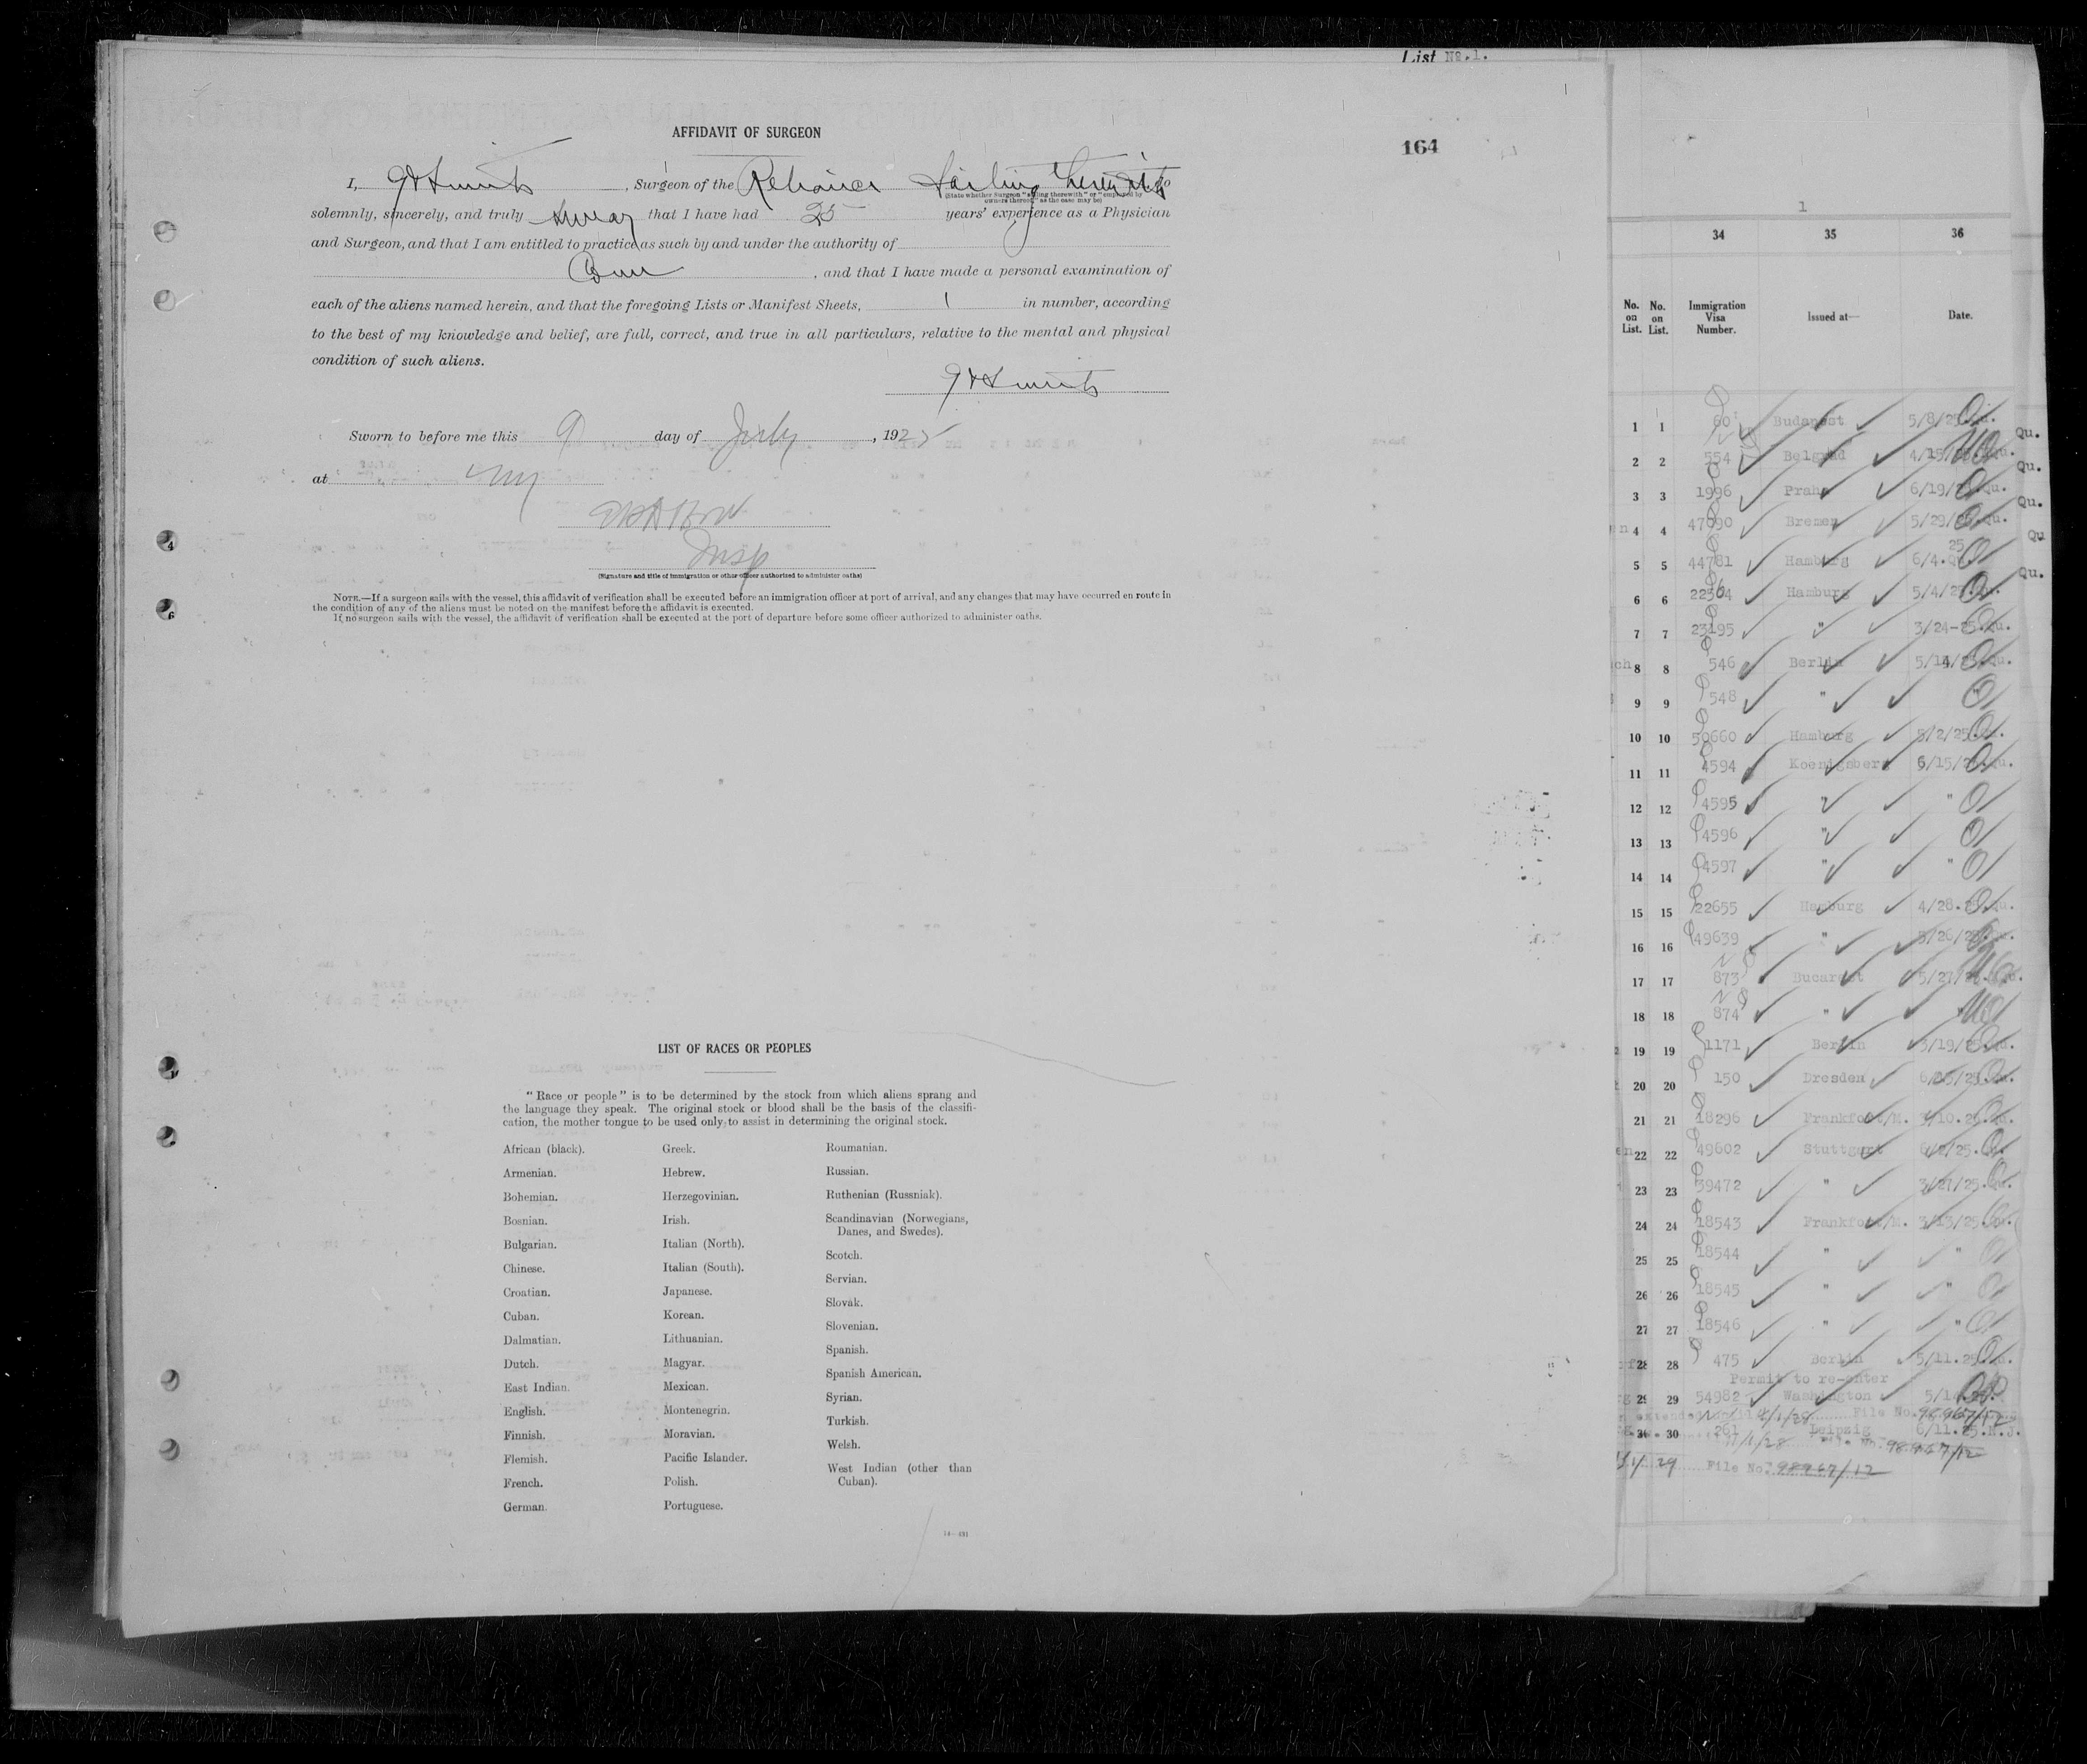 List No.1.
AFFIDAVIT OF SURGEON
164
I, , Surgeon of the Reliance Sailing therewith do
(State whether Surgeon "sailing therewith" or "employed by
owners thereof," as the case may be)
solemnly, sincerely, and truly swear that I have had 25 years' experience as a Physician
and Surgeon, and that I am entitled to practice as such by and under the authority of
, and that I have made a personal examination of
each of the aliens named herein, and that the foregoing Lists or Manifest Sheets, 1 in number, according
to the best of my knowledge and belief, are full, correct, and true in all particulars, relative to the mental and physical
condition of such aliens.
Sworn to before me this 9 day of July, 1925
at NY
Insp
(Signature and title of immigration or other officer authorized to administer oaths)
NOTE.—If a surgeon sails with the vessel, this affidavit of verification shall be executed before an immigration officer at port of arrival, and any changes that may have occurred en route in
the condition of any of the aliens must be noted on the manifest before the affidavit is executed.
If no surgeon sails with the vessel, the affidavit of verification shall be executed at the port of departure before some officer authorized to administer oaths.
LIST OF RACES OR PEOPLES
"Race or people" is to be determined by the stock from which aliens sprang and
the language they speak. The original stock or blood shall be the basis of the classifi-
cation, the mother tongue to be used only to assist in determining the original stock.
African (black).
Armenian.
Bohemian.
Bosnian.
Bulgarian.
Chinese.
Croatian.
Cuban.
Dalmatian.
Dutch.
East Indian.
English.
Finnish.
Flemish.
French.
German.
Greek.
Hebrew.
Herzegovinian.
Irish.
Italian (North).
Italian (South).
Japanese.
Korean.
Lithuanian.
Magyar.
Mexican.
Montenegrin.
Moravian.
Pacific Islander.
Polish.
Portuguese.
Roumanian.
Russian.
Ruthenian (Russniak).
Scandinavian (Norwegians,
Danes, and Swedes).
Scotch.
Servian.
Slovak.
Slovenian.
Spanish.
Spanish American.
Syrian.
Turkish.
Welsh.
West Indian (other than
Cuban).
14—491
1
34 35 36
No. on List. No. on List. Immigration Visa Number. Issued at— Date.
1 1 60 Budapest 5/8/25 Qu.
2 2 554 Belgrad 4/15/ Qu.
3 3 1996 Praha 6/19/ Qu.
4 4 47090 Bremen 5/29/ Qu.
5 5 44781 Hamburg 6/4. 25 Qu.
6 6 22504 Hamburg 5/4/25 Qu.
7 7 23195 " 3/24-25. Qu.
8 8 546 Berlin 5/14/ Qu.
9 9 548 " "
10 10 50660 Hamburg 5/2/25
11 11 4594 Koenigsberg 6/15/ Qu.
12 12 4595 " "
13 13 4596 "
14 14 4597 " "
15 15 22655 Hamburg 4/28. Qu.
16 16 49639 " 5/26/
17 17 873 Bucarest 5/27/
18 18 874 "
19 19 1171 Berlin 3/19/25. Qu.
20 20 150 Dresden 6/ /25. Qu.
21 21 18296 Frankfort/M. 3/10.25.
22 22 49602 Stuttgart 6/2/25.
23 23 39472 " 3/27/25. Qu.
24 24 18543 Frankfort/M. 3/13/25.
25 25 18544 " "
26 26 18545 " "
27 27 18546 " "
28 28 475 Berlin 5/11.25.
Permit to re-enter
29 29 54982 Washington 5/1
extended until File No. 98967/12
30 30 261 Leipzig 6/11.25.
11/1/28 98967/12
29 File No. 98967/12